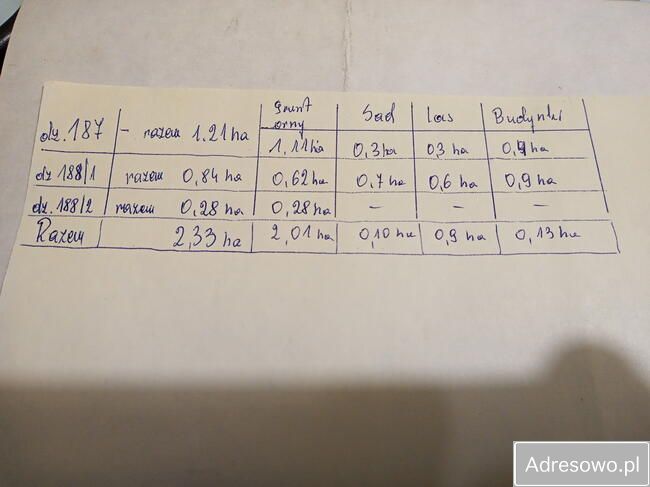 grunt orny Sad Las Budynki
dz. 187 - razem 1.21 ha 1,11 ha 0,3 ha 0,3 ha 0,4 ha
dz 188/1 razem 0,84 ha 0,62 ha 0,7 ha 0,6 ha 0,9 ha
dz. 188/2 razem 0,28 ha 0,28 ha - - -
Razem 2,33 ha 2,01 ha 0,10 ha 0,9 ha 0,13 ha
Adresowo.pl